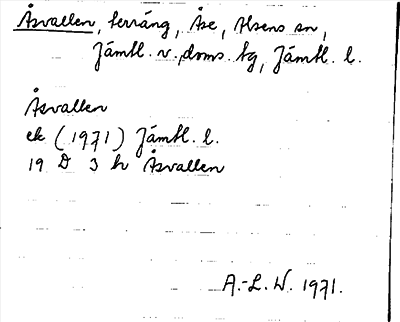 Åsvallen, terräng, Åse, Alsens sn,
Jämtl. v. doms. tg, Jämtl. l.
Åsvallen
ek (1971) Jämtl. l.
19 D 3 h Åsvallen
A.-L. W. 1971.